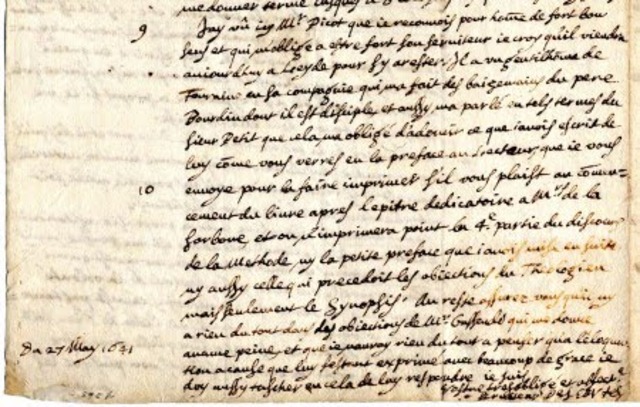 me donner terme jusques a
9
Jay vû icy Mr Picot que ie reconnois pour home de fort bon
sens et qui m'oblige a estre fort son serviteur ie croy qu'il viendra
auiourd'huy a Leyde pour s'y arester. Il a vn gentilhome de
Touraine en sa compagnie qui m'a fait des baizemains du pere
Bourdin dont il est disciple, et aussy m'a parlé en tels termes du
sieur Petit que cela m'a obligé d'adoucir ce que i'auois escrit de
luy come vous verres en la preface au Lecteur, que ie vous
10
enuoye pour la faire imprimer s'il vous plaist au comen-
cement du livre apres l'epitre dedicatoire a Mrs de la
Sorbone, et on n'imprimera point la 4e partie du discours
de la Methode, ny la petite preface que i'auois mise en suite
ny aussy celle qui precedoit les obiections du Theologien
mais seulement le Synopsis. Au reste assurez vous qu'il n'y
a rien du tout dans les obiections de Mr Gassendi qui me donne
aucune peine, et que ie n'auray rien du tout a penser qu'a l'eloqu
tion a cause que luy s'estant exprimé avec beaucoup de grace ie
doy aussy tascher en cela de luy respondre ie suis
Du 27 May 1641
Vostre tres obligé et affect.
serviteur Des Cartes